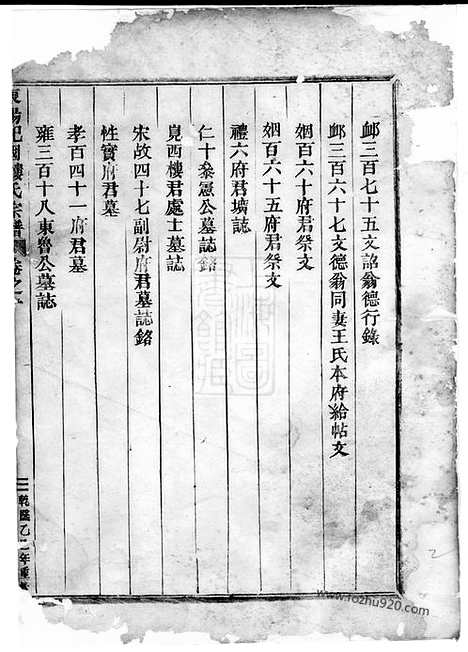 邮三百七十五文諮翁德行錄
邮三百六十七文德翁同妻王氏本府給帖文
姻百六十府君祭文
姻百六十五府君祭文
禮六府君壙誌
仁十叅憲公墓誌銘
見西樓君處士墓誌
宋故四十七副尉府君墓誌銘
性實府君墓
孝百四十一府君墓
雍三百十八東魯公墓誌
東陽圯園樓氏宗譜 卷之
乾隆乙 年重
www.fozhu920.com
2